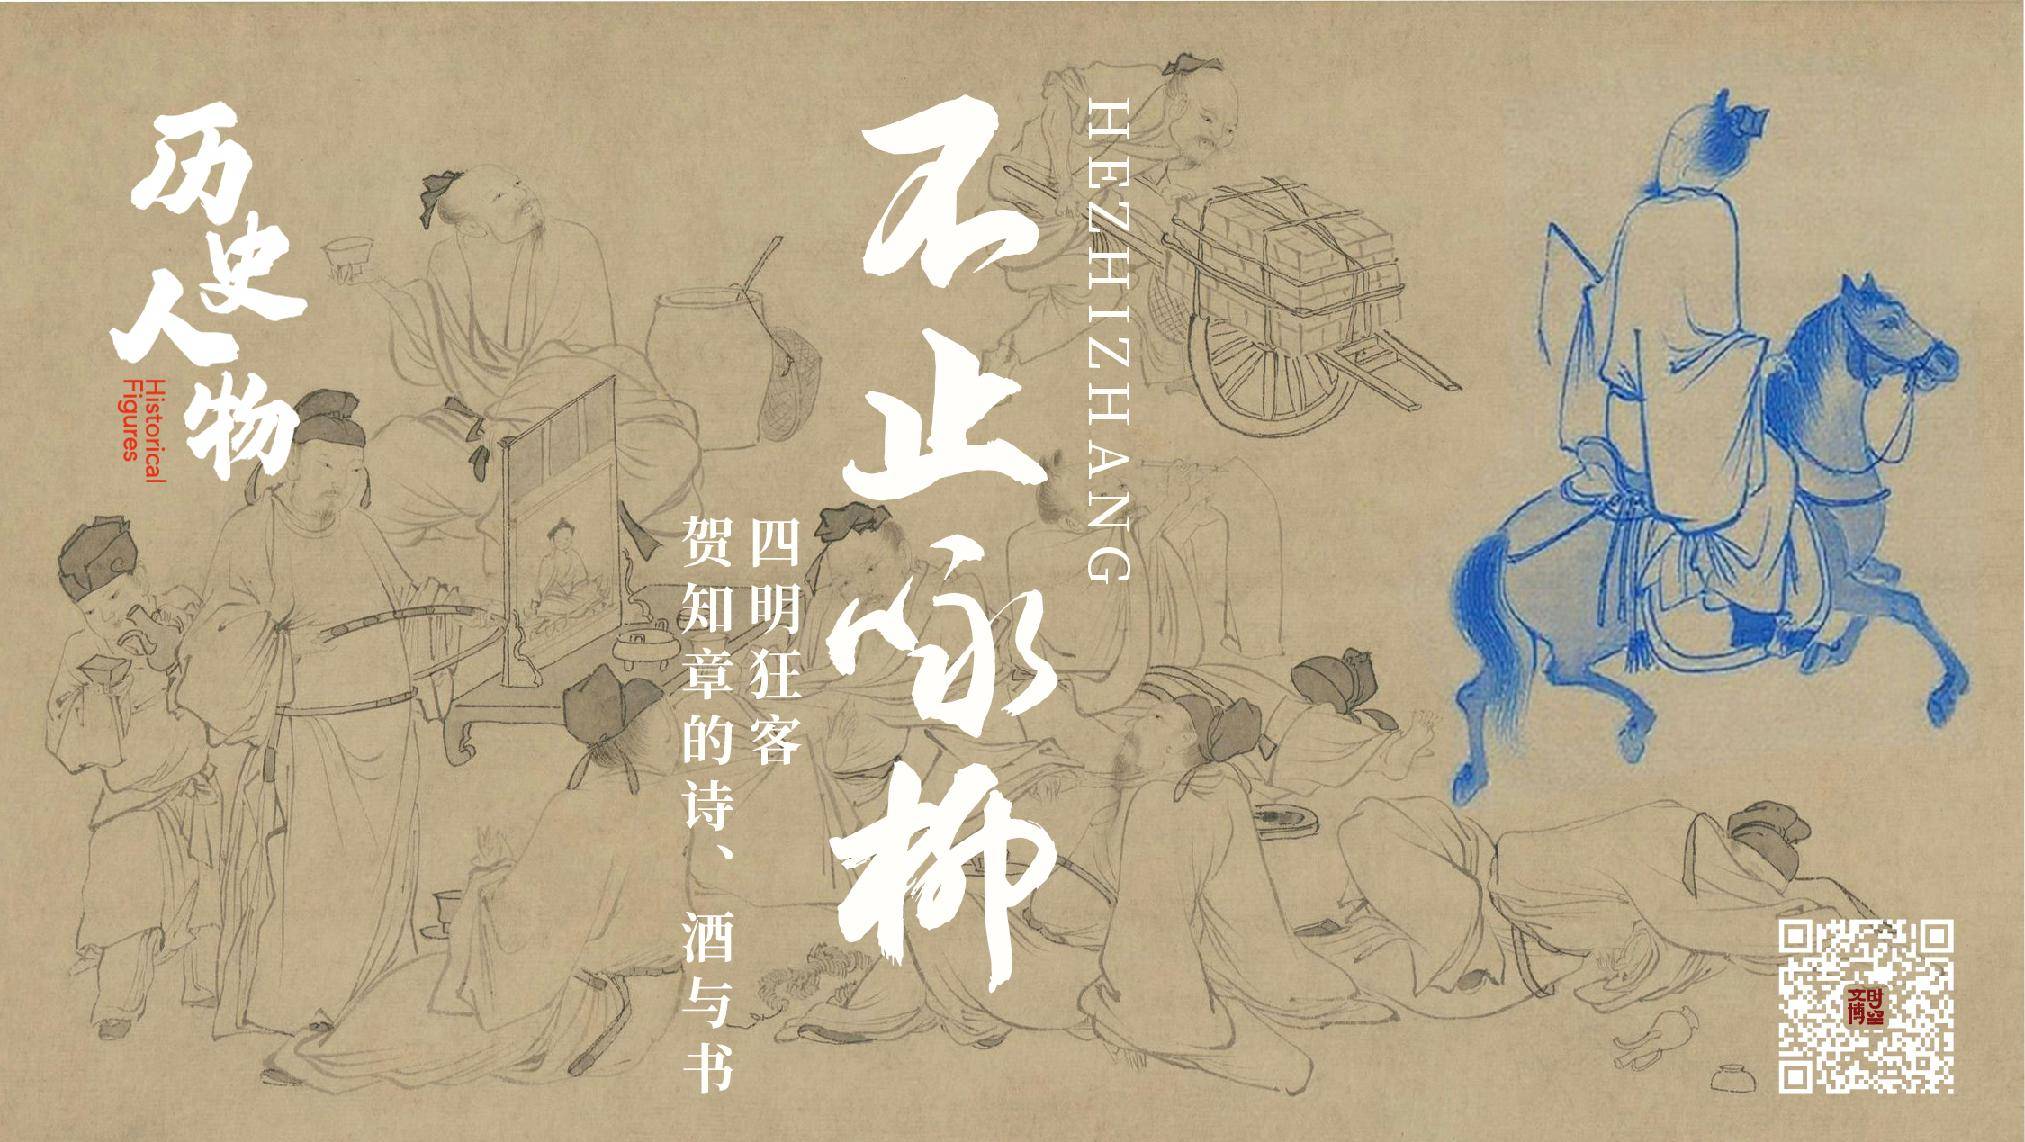 历史人物
Historical
Figures
不止咏柳
HEZHIZHANG
四明狂客
贺知章的诗、酒与书
时空
文博